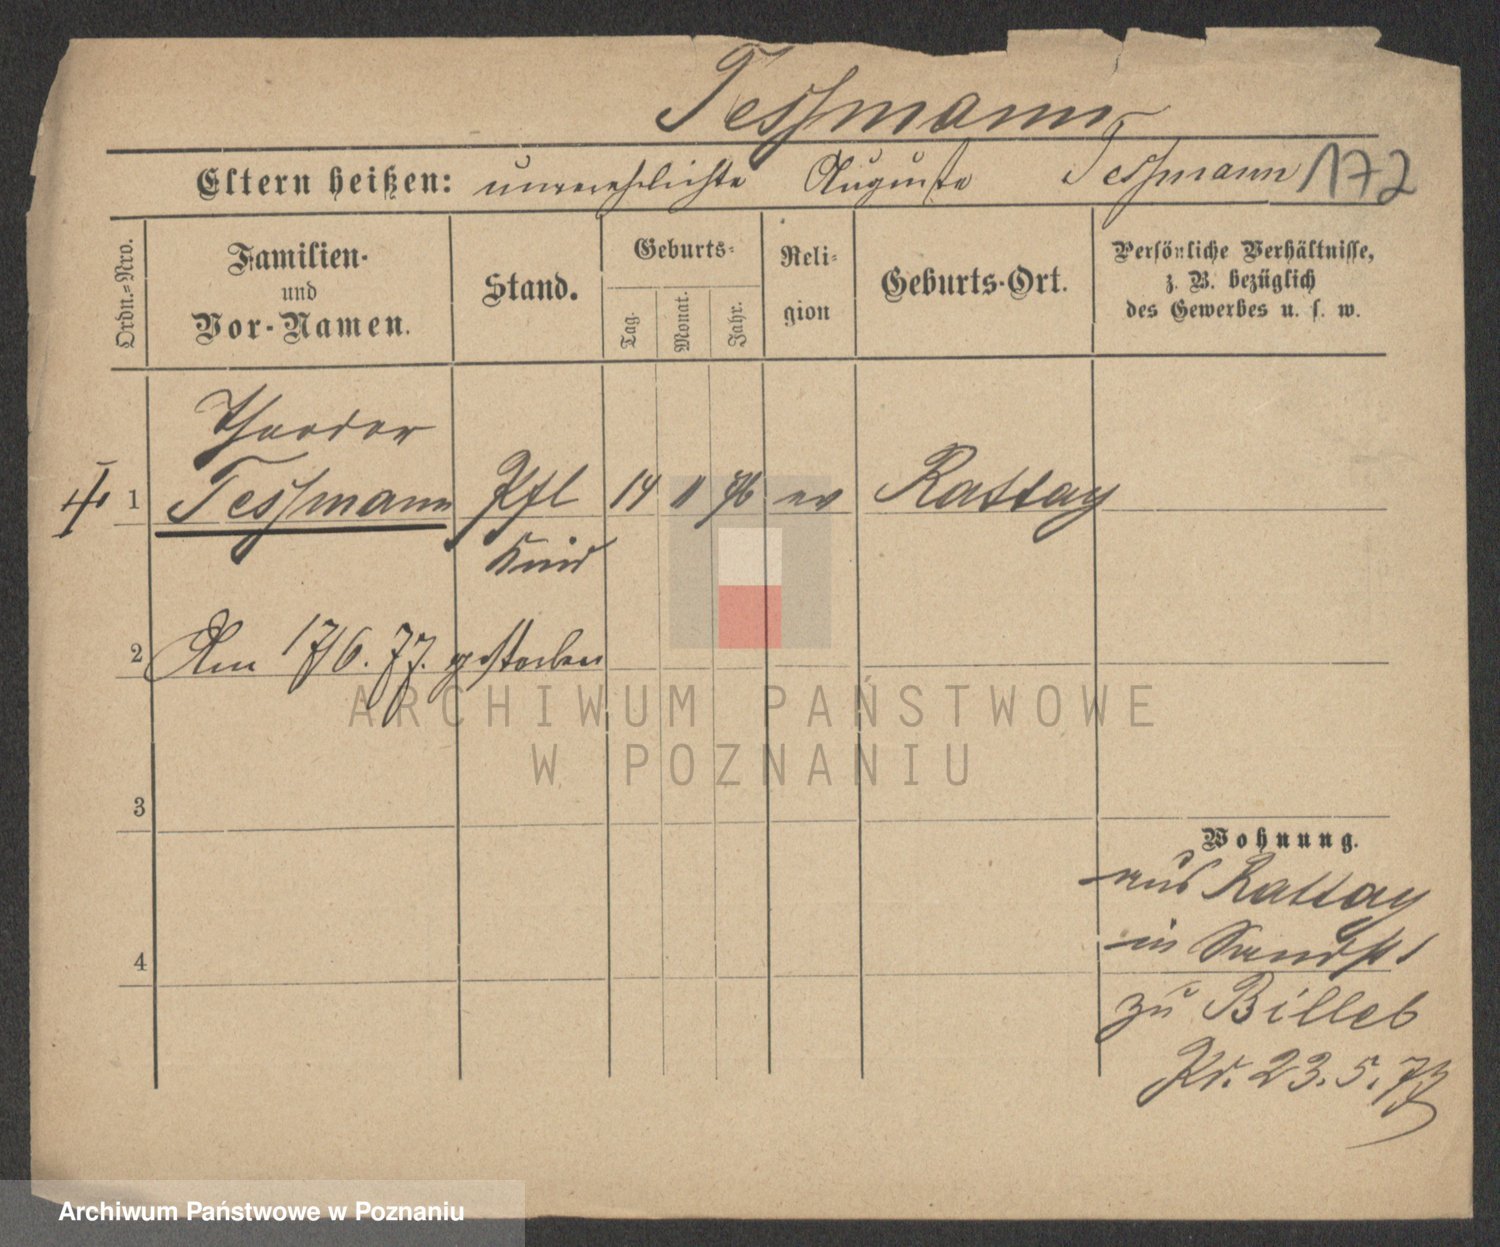 Tessmann
Eltern heißen: unverehlichte Auguste Tessmann 172
Ordn.-Nro.
Familien-
und
Vor-Namen.
Stand.
Geburts-
Tag.
Monat.
Jahr.
Reli-
gion
Geburts-Ort.
Persönliche Verhältnisse,
z. B. bezüglich
des Gewerbes u. s. w.
Theodor
1 Tessmann Pfl 14 11 76 ev Rattay
Kind
2 Am 17/6. 77. gestorben
3
4
Wohnung.
aus Rattay
in
zu Billeb
23. 5. 77
ARCHIWUM PAŃSTWOWE
W POZNANIU
Archiwum Państwowe w Poznaniu